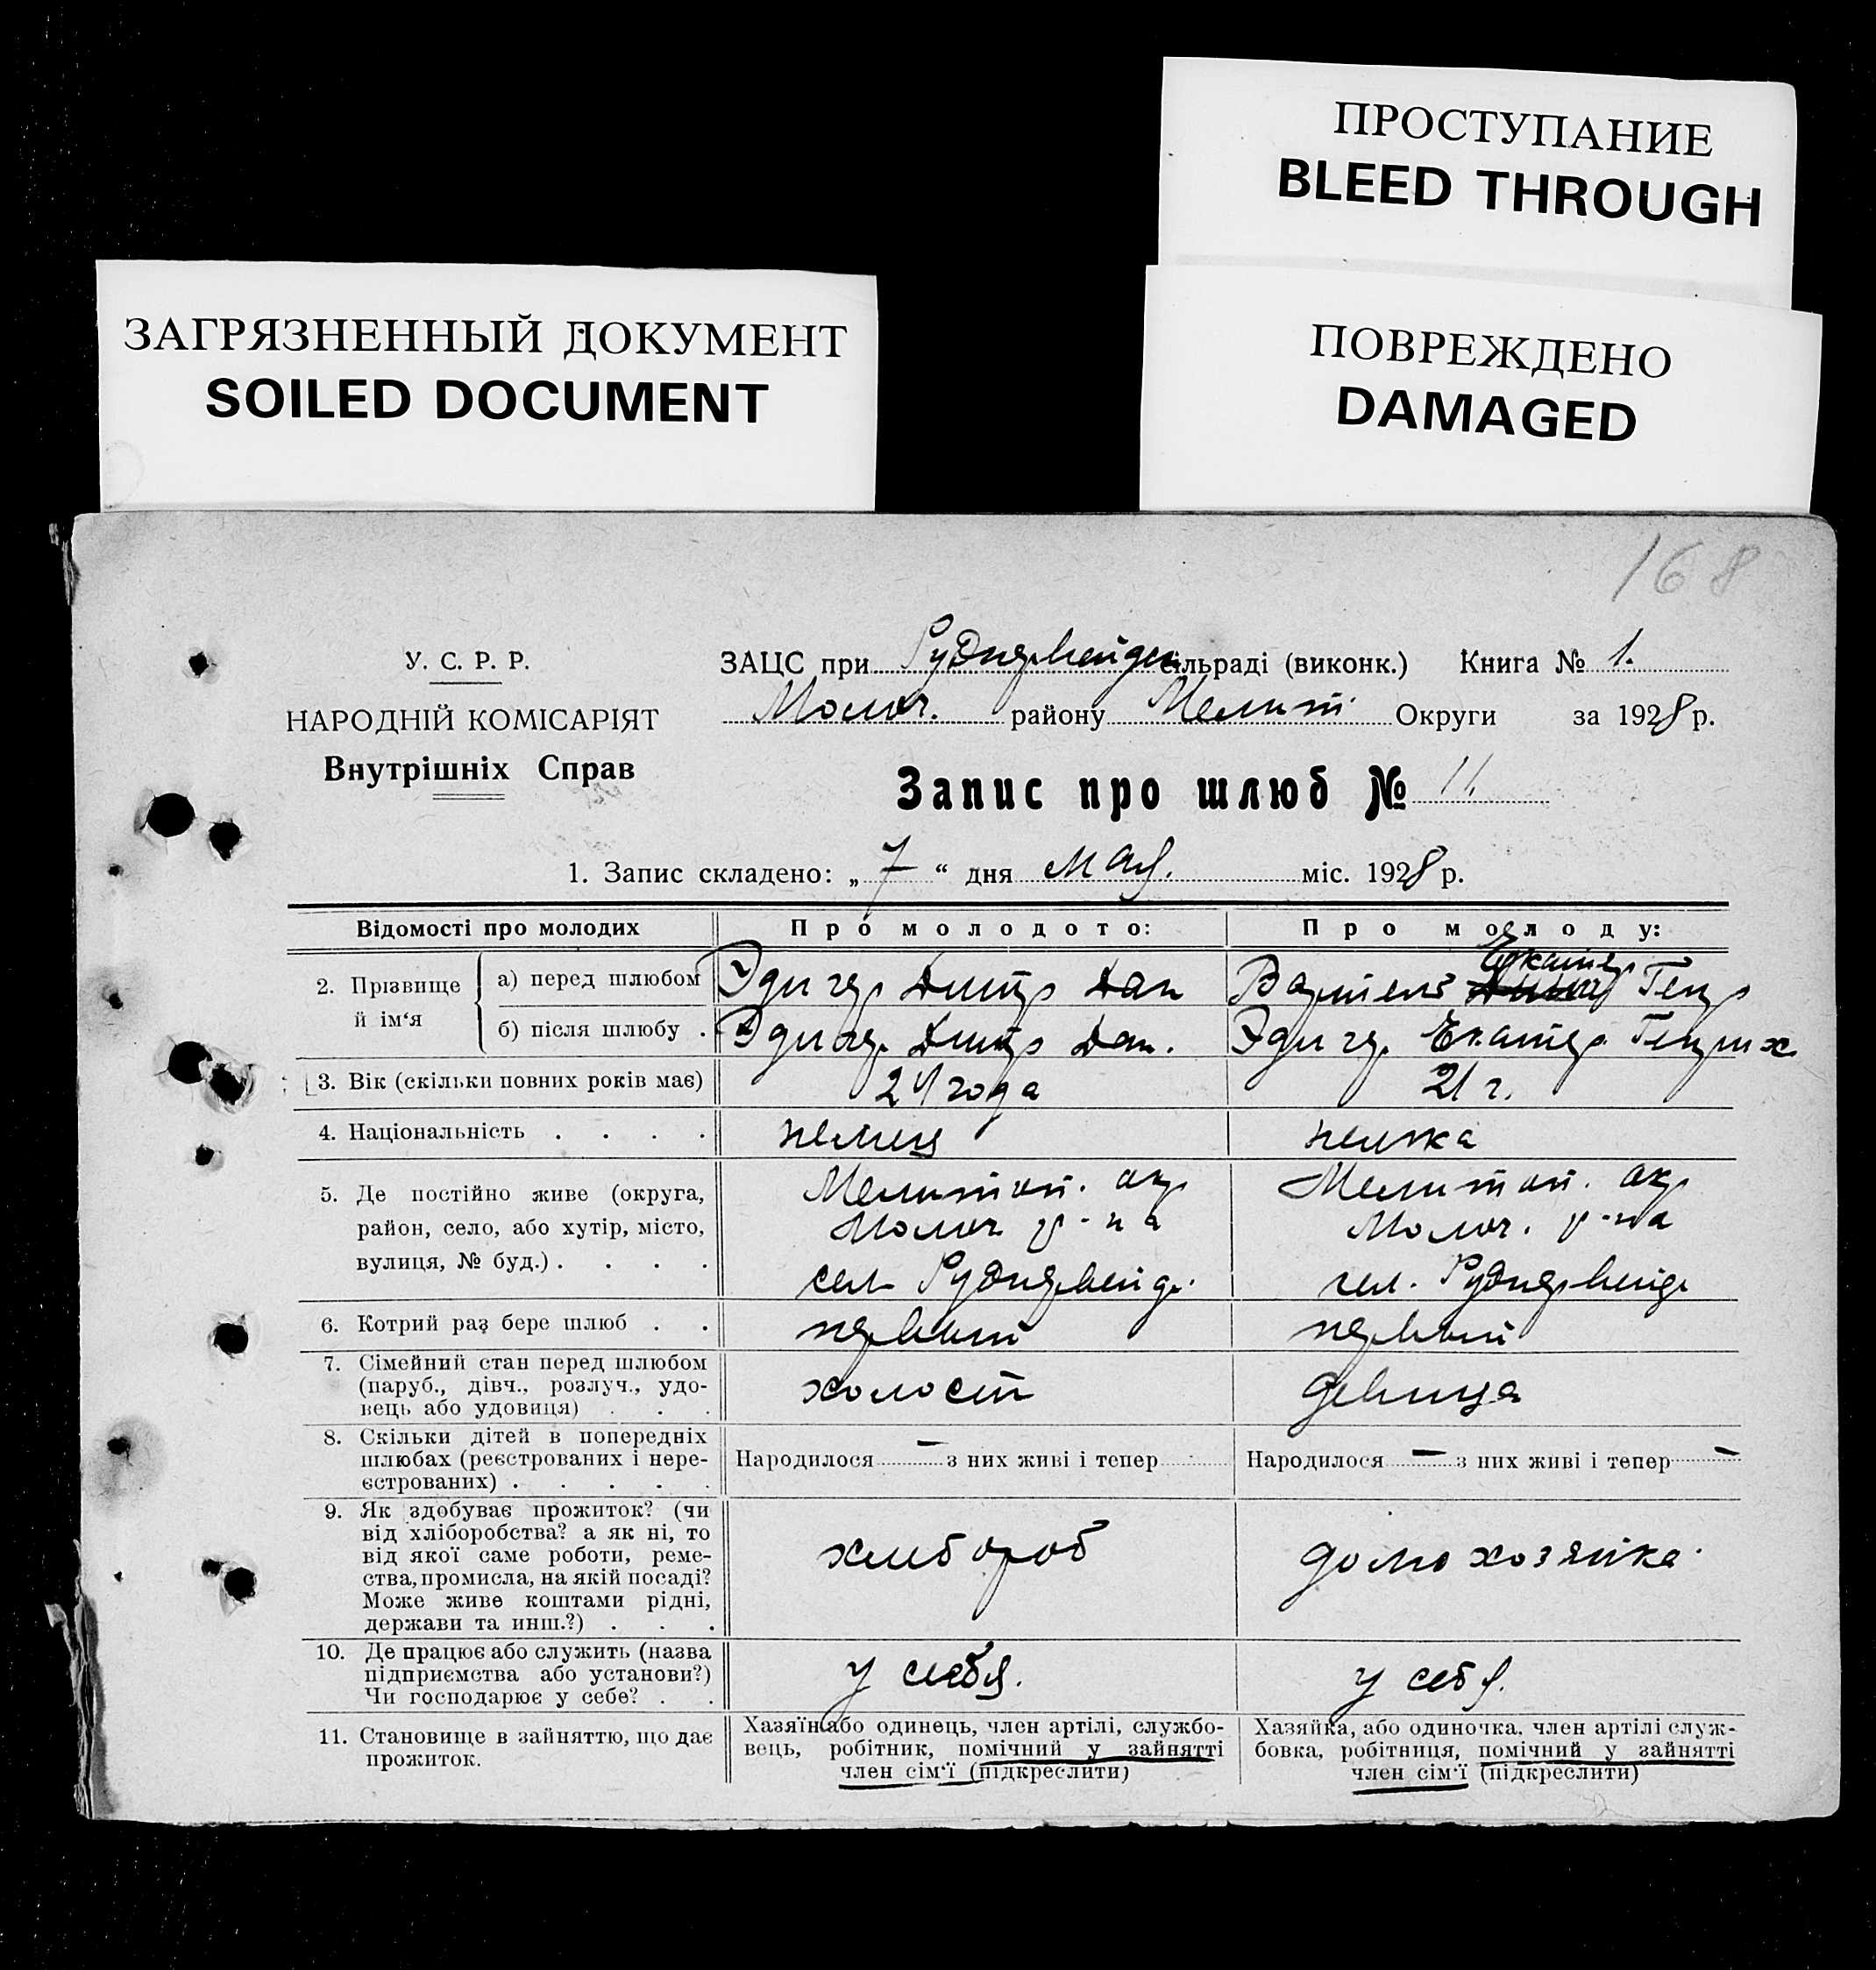 ПРОСТУПАНИЕ
BLEED THROUGH
ЗАГРЯЗНЕННЫЙ ДОКУМЕНТ
SOILED DOCUMENT
ПОВРЕЖДЕНО
DAMAGED
168
У. С. Р. Р.
НАРОДНІЙ КОМІСАРІЯТ
Внутрішніх Справ
ЗАЦС при Рудnервейден сільраді (виконк.) Книга № 1.
Молоч. району Мелит. Округи за 1928 р.
Запис про шлюб № 11.
1. Запис складено: „ 7 “ дня мая. міс. 1928 р.
Відомості про молодих
Про молодого:
Про молоду:
2. Прізвище й ім‘я
а) перед шлюбом
Эдигер Дмитр Дан
Бартель Екатер Генр
б) після шлюбу .
Эдигер. Дмитр Дан.
Эдигер. Екатер. Генрих.
3. Вік (скільки повних років має)
24 года
21 г.
4. Національність . . . .
немец
немка
5. Де постійно живе (округа,
район, село, або хутір, місто,
вулиця, № буд.) . . . .
Мелитоп. окр
Молоч р-на
сел
Мелитоп. окр
Молоч. р-на
сел.
6. Котрий раз бере шлюб . .
первый
первый
7. Сімейний стан перед шлюбом
(паруб., дівч., розлуч., удо-
вець або удовиця) . . .
холост
девица
8. Скільки дітей в попередніх
шлюбах (реєстрованих і нере-
єстрованих) . . . . .
Народилося — з них живі і тепер
Народилося — з них живі і тепер —
9. Як здобуває прожиток? (чи
від хліборобства? а як ні, то
від якої саме роботи, реме-
ства, промисла, на якій посаді?
Може живе коштами рідні,
держави та инш.?) . . .
хлебороб
домохозяйка.
10. Де працює або служить (назва
підприємства або установи?)
Чи господарює у себе? . .
у себя.
у себя.
11. Становище в зайняттю, що дає
прожиток.
Хазяїн або одинець, член артілі, службо-
вець, робітник, помічний у зайнятті
член сім‘ї (підкреслити)
Хазяйка, або одиночка, член артілі служ-
бовка, робітниця, помічний у зайнятті
член сім‘ї (підкреслити)